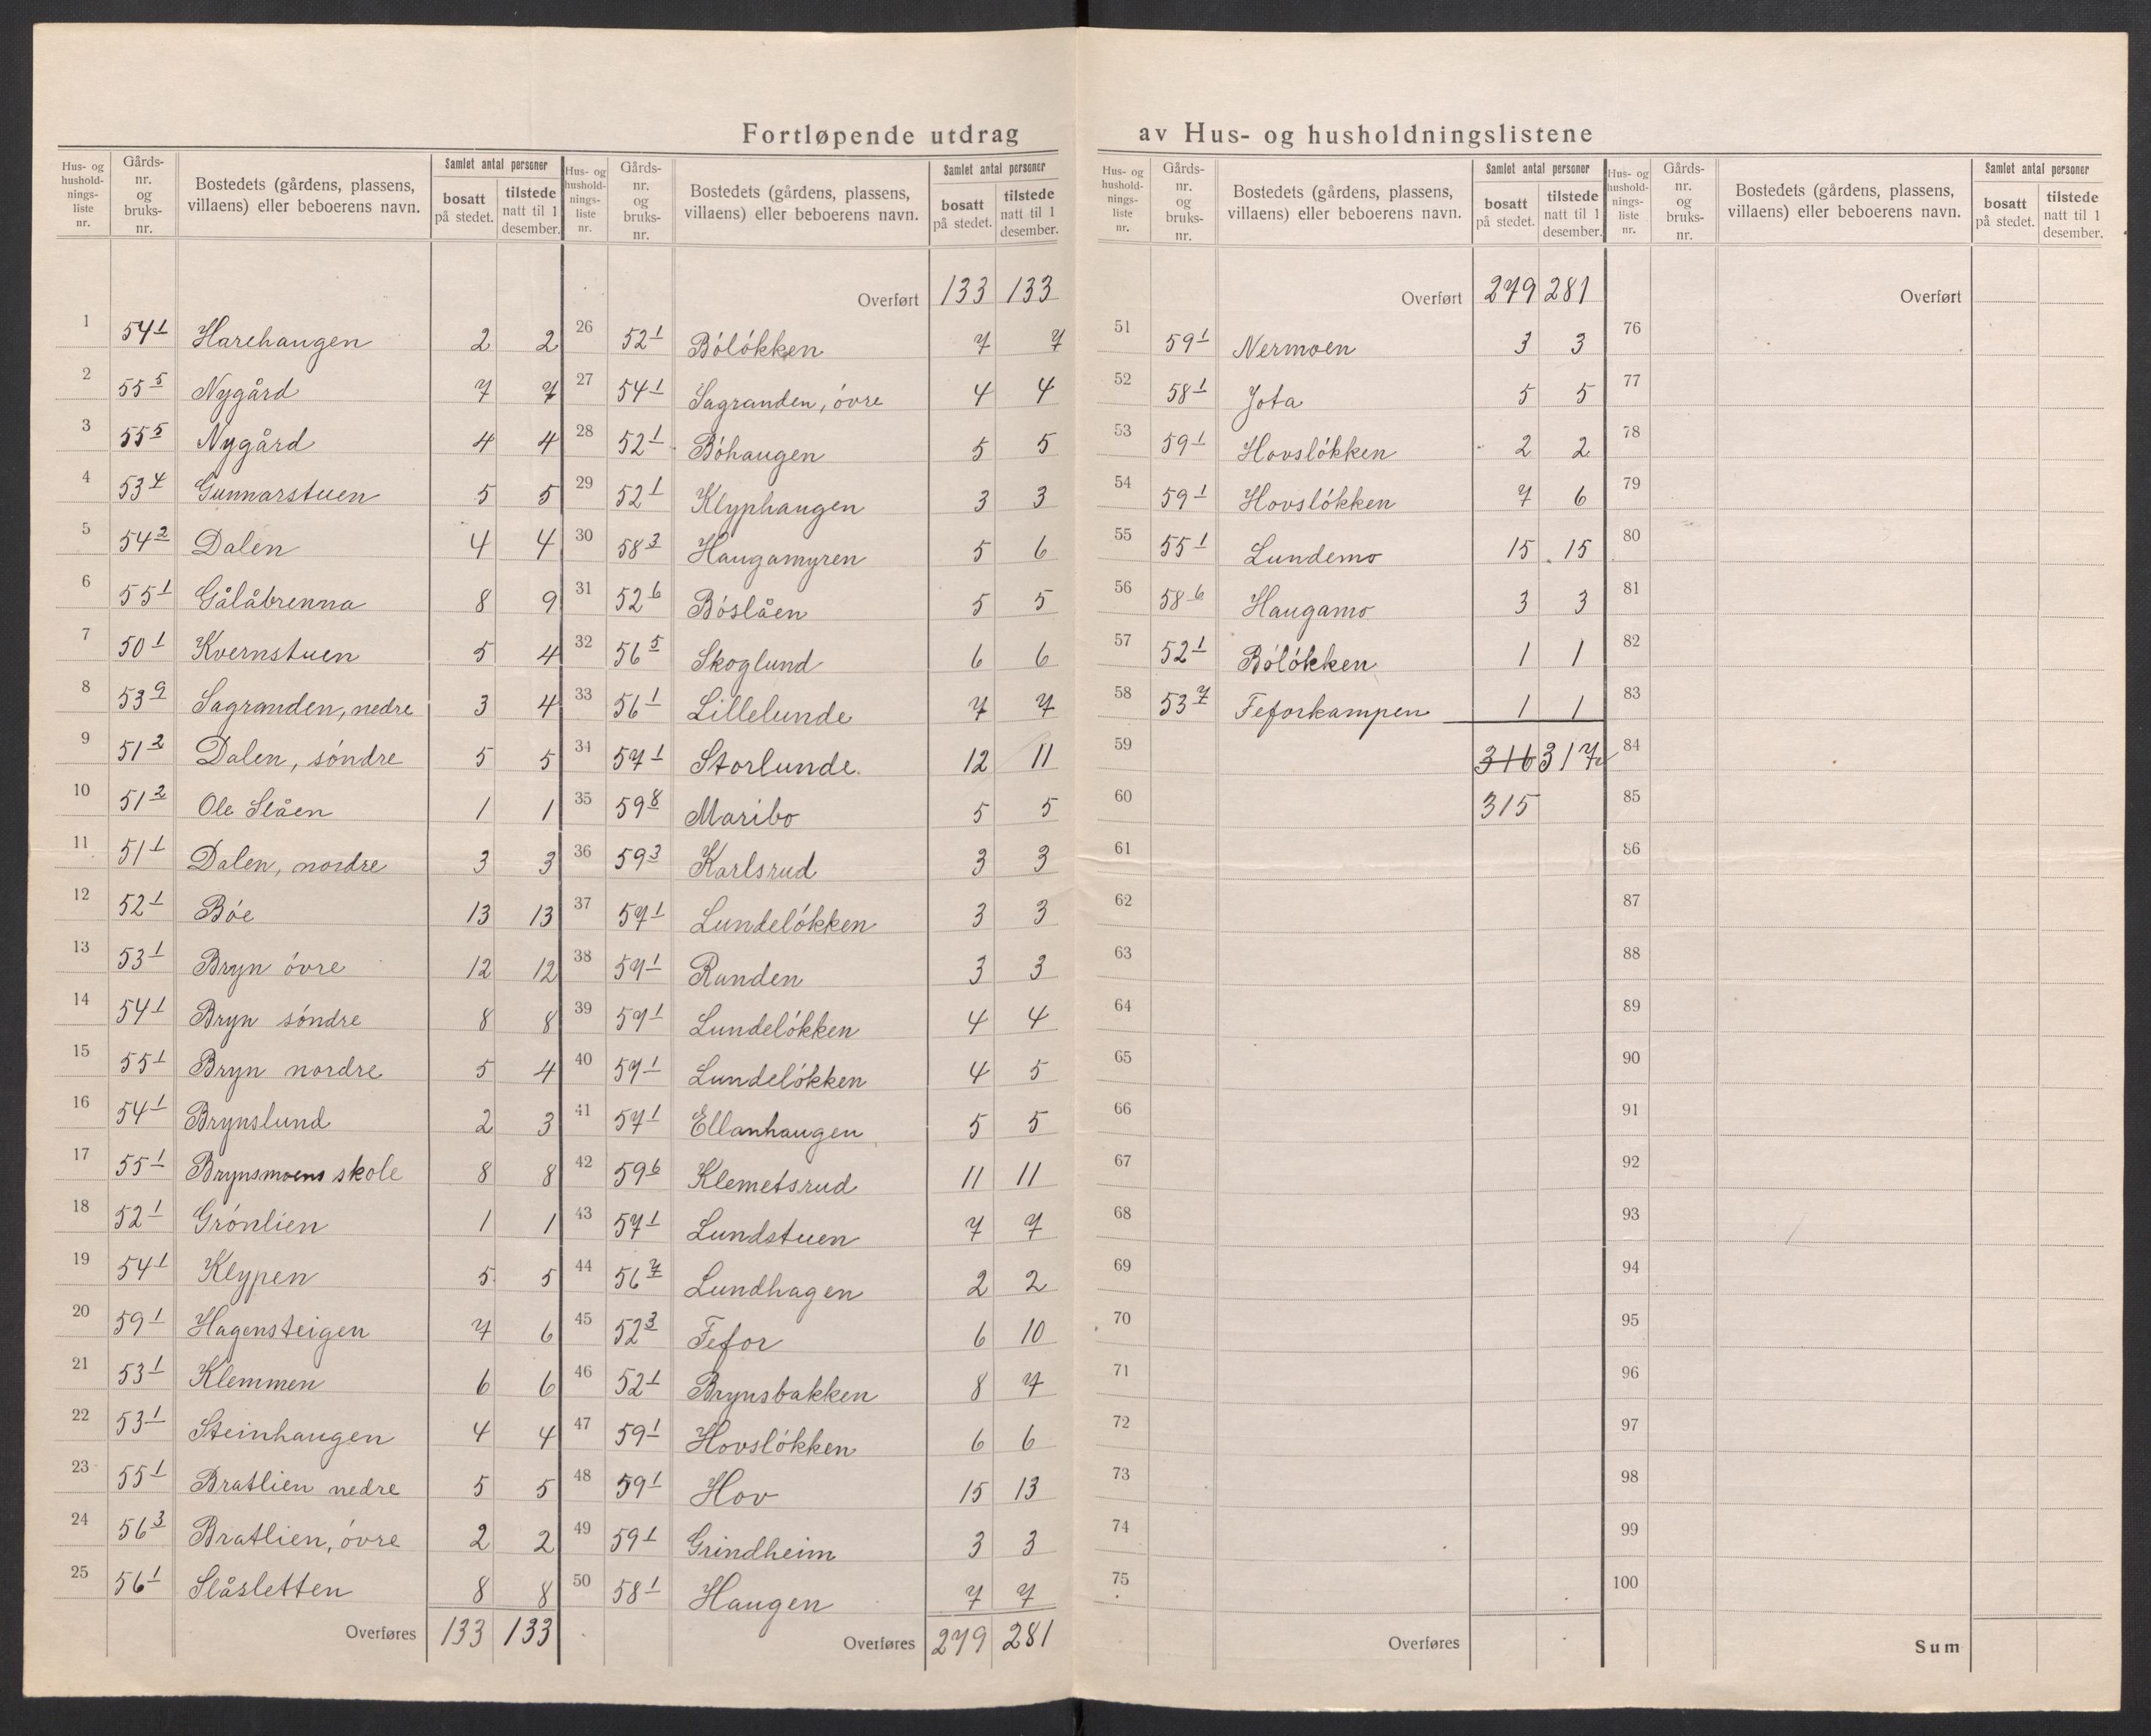 Fortløpende utdrag av Hus- og husholdningslistene
Hus- og husholdningsliste nr. | Gårds- nr. og bruks- nr. | Bostedets (gårdens, plassens, villaens) eller beboerens navn. | Samlet antal personer | bosatt på stedet. | tilstede natt til 1 desember.
1 54 1 Harehaugen 2 2
2 55 5 Nygård 7 7
3 55 5 Nygård 4 4
4 53 4 Gunnarstuen 5 5
5 54 2 Dalen 4 4
6 55 1 Gålåbrenna 8 9
7 50 1 Kvernstuen 5 4
8 53 9 Sagranden, nedre 3 4
9 51 2 Dalen, søndre 5 5
10 51 2 Ole Slåen 1 1
11 51 1 Dalen, nordre 3 3
12 52 1 Bøe 13 13
13 53 1 Bryn øvre 12 12
14 54 1 Bryn søndre 8 8
15 55 1 Bryn nordre 5 4
16 54 1 Brynslund 2 3
17 55 1 Brynsmoens skole 8 8
18 52 1 Grønlien 1 1
19 54 1 Klypen 5 5
20 59 1 Hagensteigen 7 6
21 53 1 Klemmen 6 6
22 53 1 Steinhaugen 4 4
23 55 1 Bratlien nedre 5 5
24 56 3 Bratlien, øvre 2 2
25 56 1 Slåsletten 8 8
Overføres 133 133
Hus- og husholdningsliste nr. | Gårds- nr. og bruks- nr. | Bostedets (gårdens, plassens, villaens) eller beboerens navn. | Samlet antal personer | bosatt på stedet. | tilstede natt til 1 desember.
Overført 133 133
26 52 1 Bøløkken 7 7
27 54 1 Sagranden, øvre 4 4
28 52 1 Bøhaugen 5 5
29 52 1 Klyphaugen 3 3
30 58 3 Haugamyren 5 6
31 52 6 Bøslåen 5 5
32 56 5 Skoglund 6 6
33 56 1 Lillelunde 7 7
34 57 1 Storlunde 12 11
35 59 8 Maribo 5 5
36 59 3 Karlsrud 3 3
37 57 1 Lundeløkken 3 3
38 57 1 Randen 3 3
39 57 1 Lundeløkken 4 4
40 57 1 Lundeløkken 4 5
41 57 1 Ellanhaugen 5 5
42 59 6 Klemetsrud 11 11
43 57 1 Lundstuen 7 7
44 56 7 Lundhagen 2 2
45 52 3 Fefor 6 10
46 52 1 Brynsbakken 8 7
47 59 1 Hovsløkken 6 6
48 59 1 Hov 15 13
49 59 1 Grindheim 3 3
50 58 1 Haugen 7 7
Overføres 279 281
Hus- og husholdningsliste nr. | Gårds- nr. og bruks- nr. | Bostedets (gårdens, plassens, villaens) eller beboerens navn. | Samlet antal personer | bosatt på stedet. | tilstede natt til 1 desember.
Overført 279 281
51 59 1 Nermoen 3 3
52 58 1 Jota 5 5
53 59 1 Hovsløkken 2 2
54 59 1 Hovsløkken 7 6
55 55 1 Lundemo 15 15
56 58 6 Haugamo 3 3
57 52 1 Bøløkken 1 1
58 53 7 Feforkampen 1 1
59 316 317
60 315
61
62
63
64
65
66
67
68
69
70
71
72
73
74
75
Overføres
Hus- og husholdningsliste nr. | Gårds- nr. og bruks- nr. | Bostedets (gårdens, plassens, villaens) eller beboerens navn. | Samlet antal personer | bosatt på stedet. | tilstede natt til 1 desember.
Overført
76
77
78
79
80
81
82
83
84
85
86
87
88
89
90
91
92
93
94
95
96
97
98
99
100
Sum